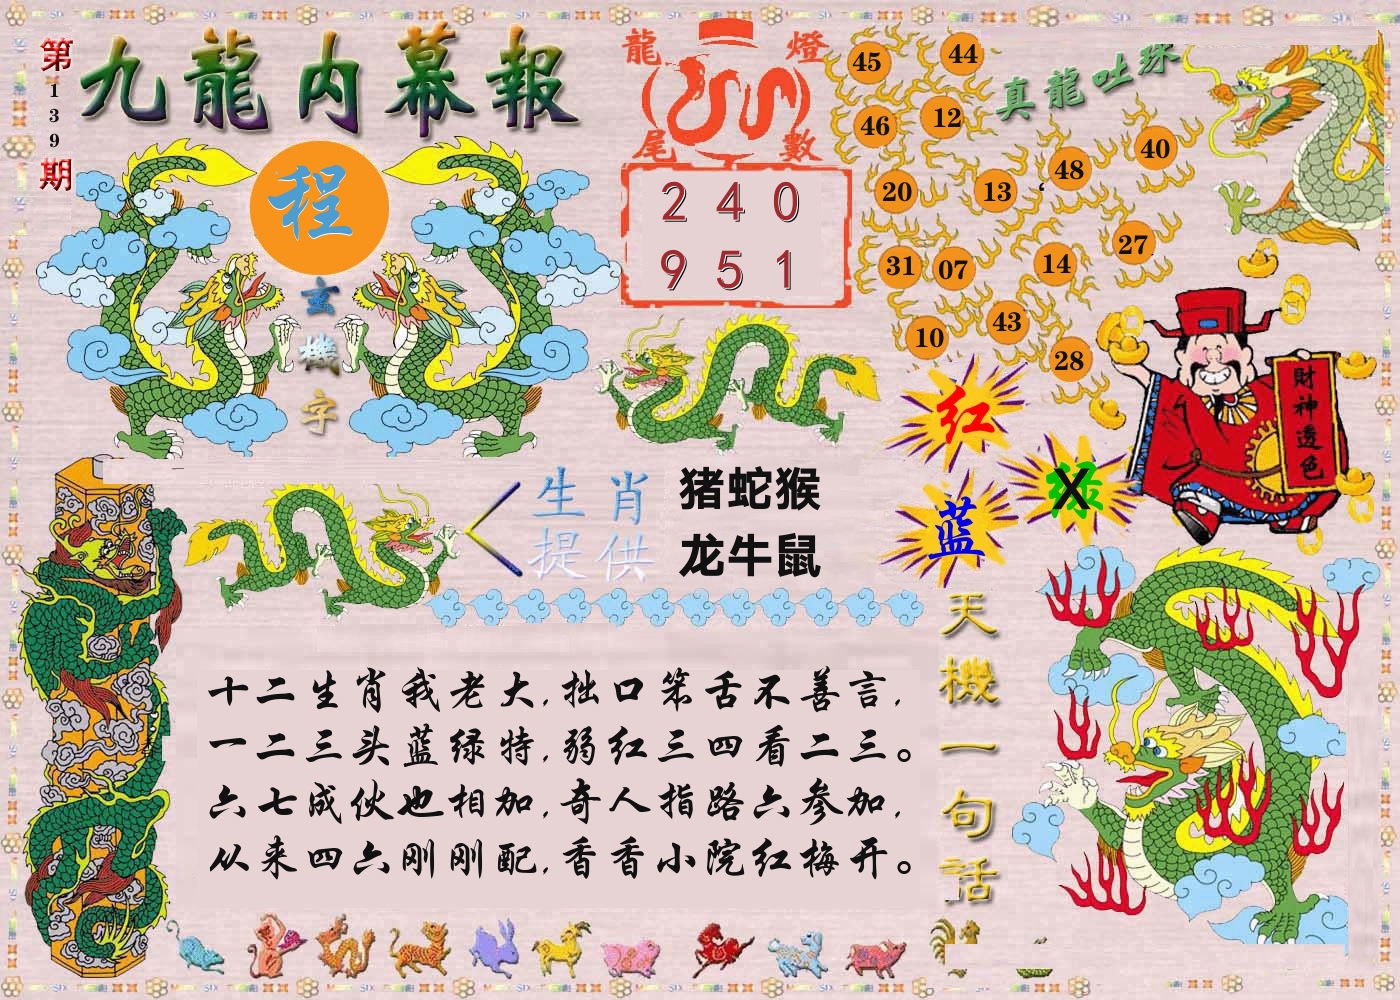 第139期
九龍内幕報
程
玄機字
龍燈尾數
240
951
真龍吐珠
45
44
46
12
20
13
48
40
31
07
14
27
10
43
28
財神透色
红
绿
X
蓝
生肖
提供
猪蛇猴
龙牛鼠
天機一句話
十二生肖我老大,拙口笨舌不善言,
一二三头蓝绿特,弱红三四看二三。
六七成伙也相加,奇人指路六参加,
从来四六刚刚配,香香小院红梅开。